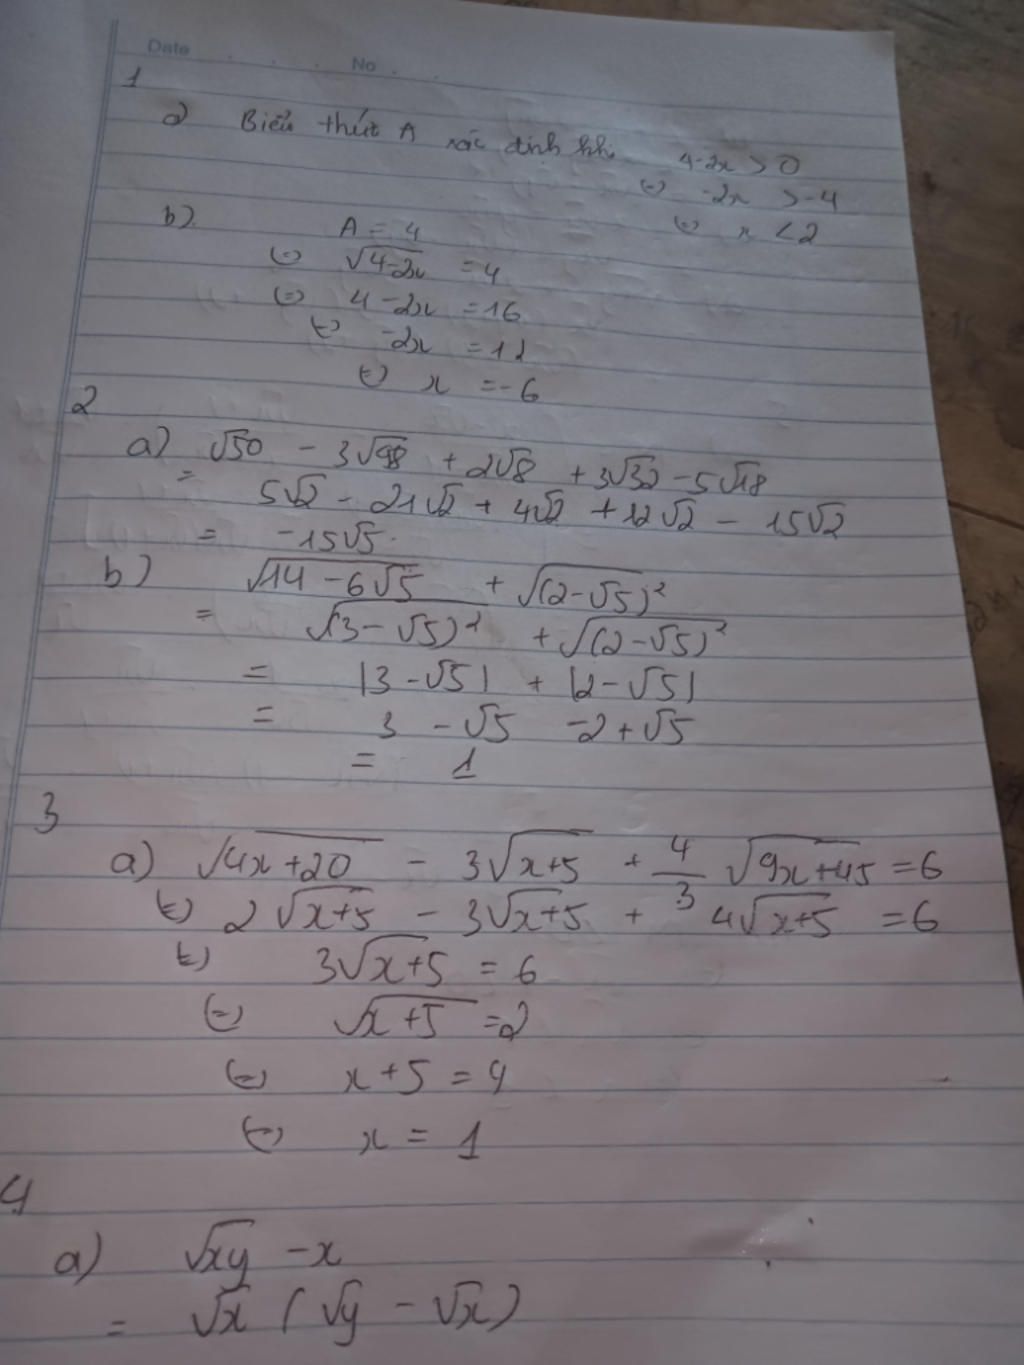 Date No
1
a) Biểu thức A xác định khi 4-2x > 0
(=) -2x > -4
(=) x < 2
b) A = 4
(=) √(4-2x) = 4
(=) 4 - 2x = 16
(=) -2x = 12
(=) x = -6
2
a) √50 - 3√98 + 2√8 + 3√32 - 5√18
= 5√2 - 21√2 + 4√2 + 12√2 - 15√2
= -15√5.
b) √(14 - 6√5) + √(2-√5)²
= √(3-√5)² + √(2-√5)²
= |3-√5| + |2-√5|
= 3 - √5 -2+√5
= 1
3
a) √(4x+20) - 3√(x+5) + 4/3 √(9x+45) = 6
(=) 2√(x+5) - 3√(x+5) + 4√(x+5) = 6
(=) 3√(x+5) = 6
(=) √(x+5) = 2
(=) x+5 = 4
(=) x = 1
4
a) √xy - x
= √x (√y - √x)